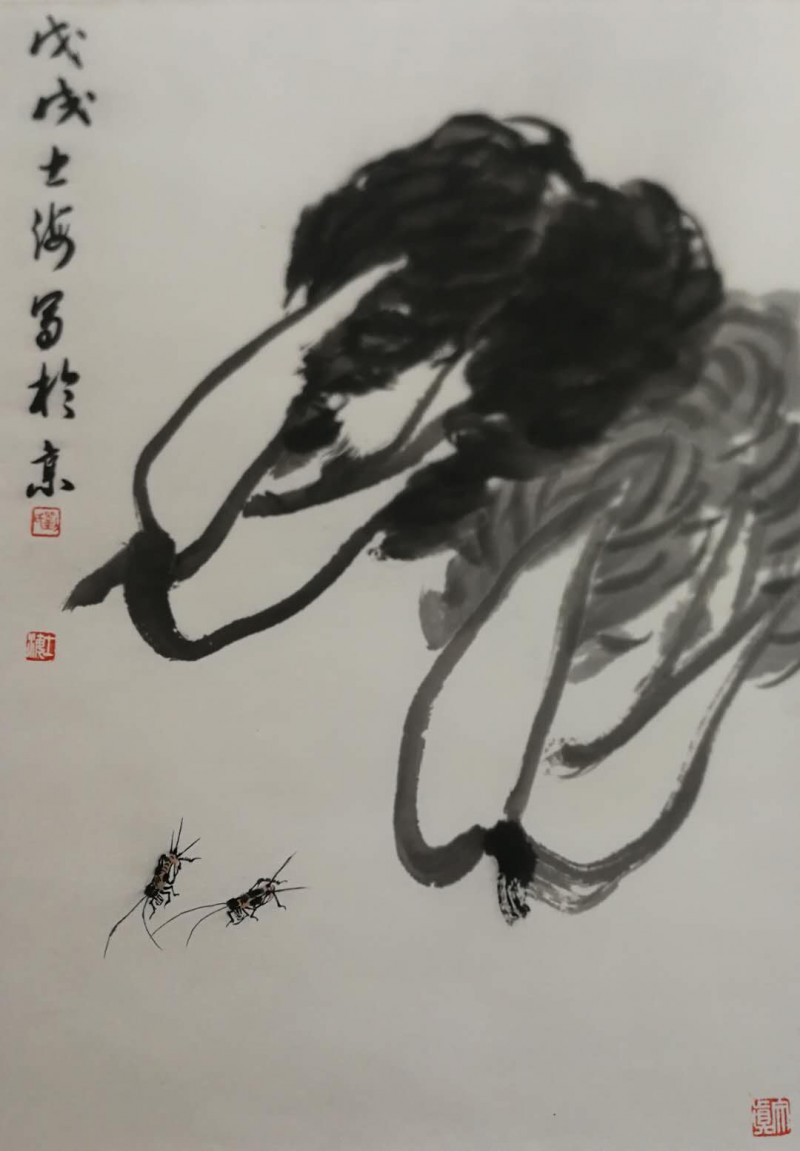 戊戌士海写於京